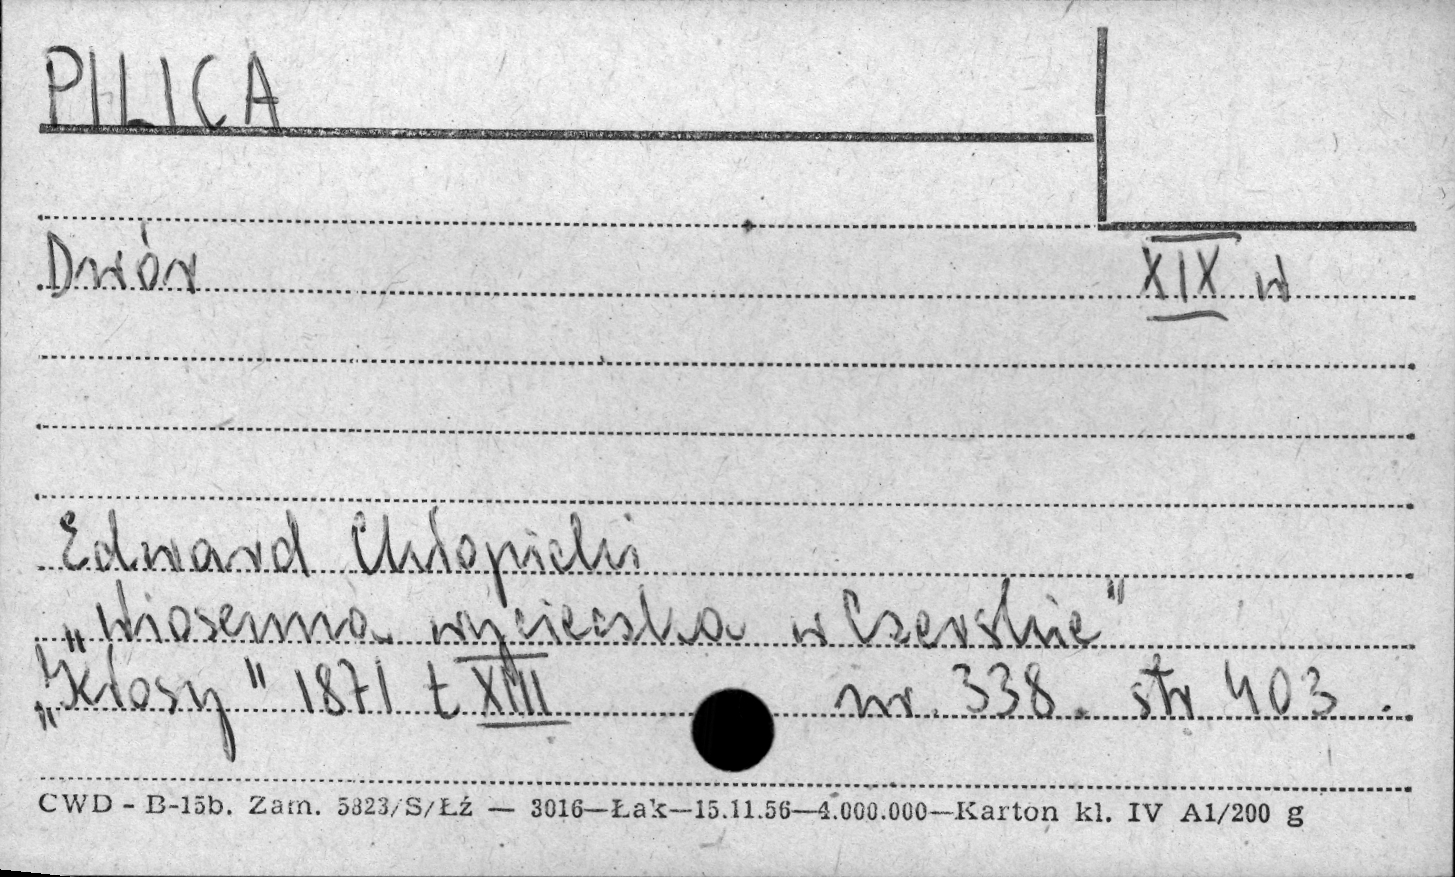 PILICA
Dwór XIX w
Edward Chłopicki
„Wiosenna wycieczka w Czerskie"
„Kłosy" 1871 t XIII nr. 338. str 403.
CWD - B-15b. Zam. 5823/S/Łź — 3016—Łak—15.11.56—4.000.000—Karton kl. IV A1/200 g